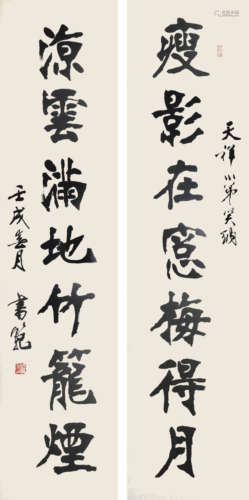 瘦影在窓梅得月
天祥小弟笑頌
涼雲滿地竹籠煙
壬戌無月
書範